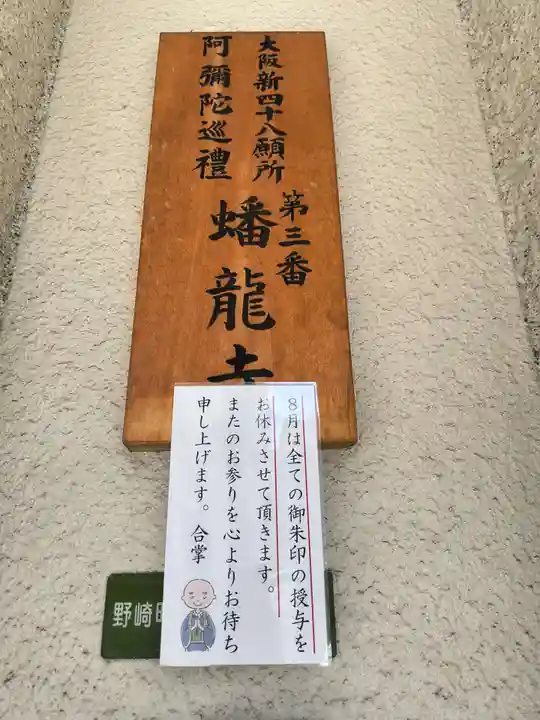 大阪新四十八願所
第三番
阿彌陀巡禮
蟠龍寺
8月は全ての御朱印の授与を
お休みさせて頂きます。
またのお参りを心よりお待ち
申し上げます。合掌
野崎町